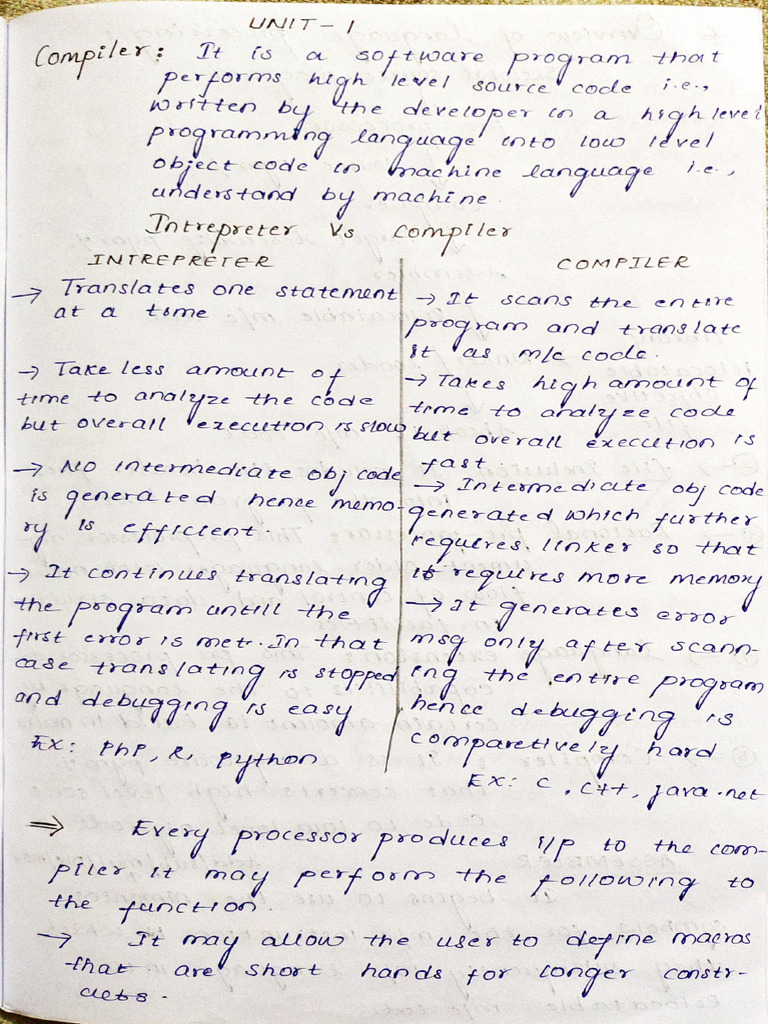 UNIT - 1
Compiler: It is a software program that
performs high level source code i.e.,
written by the developer in a high level
programming language into low level
object code in machine language i.e.,
understand by machine.
Intrepreter Vs compiler
INTREPRETER
→ Translates one statement
at a time
→ Take less amount of
time to analyze the code
but overall execution is slow
→ No intermediate obj code
is generated hence memo-
ry is efficient.
→ It continues translating
the program untill the
first error is met. In that
case translating is stopped
and debugging is easy
Ex: PhP, R, python
COMPILER
→ It scans the entire
program and translate
it as m/c code.
→ Takes high amount of
time to analyze code
but overall execution is
fast
→ Intermediate obj code
generated which further
requires linker so that
it requires more memory
→ It generates error
msg only after scann-
ing the entire program
hence debugging is
comparetively hard
Ex: C, C++, java .net
⇒ Every processor produces i/p to the com-
piler it may perform the following to
the function.
→ It may allow the user to define macros
that are short hands for longer constr-
ucts.